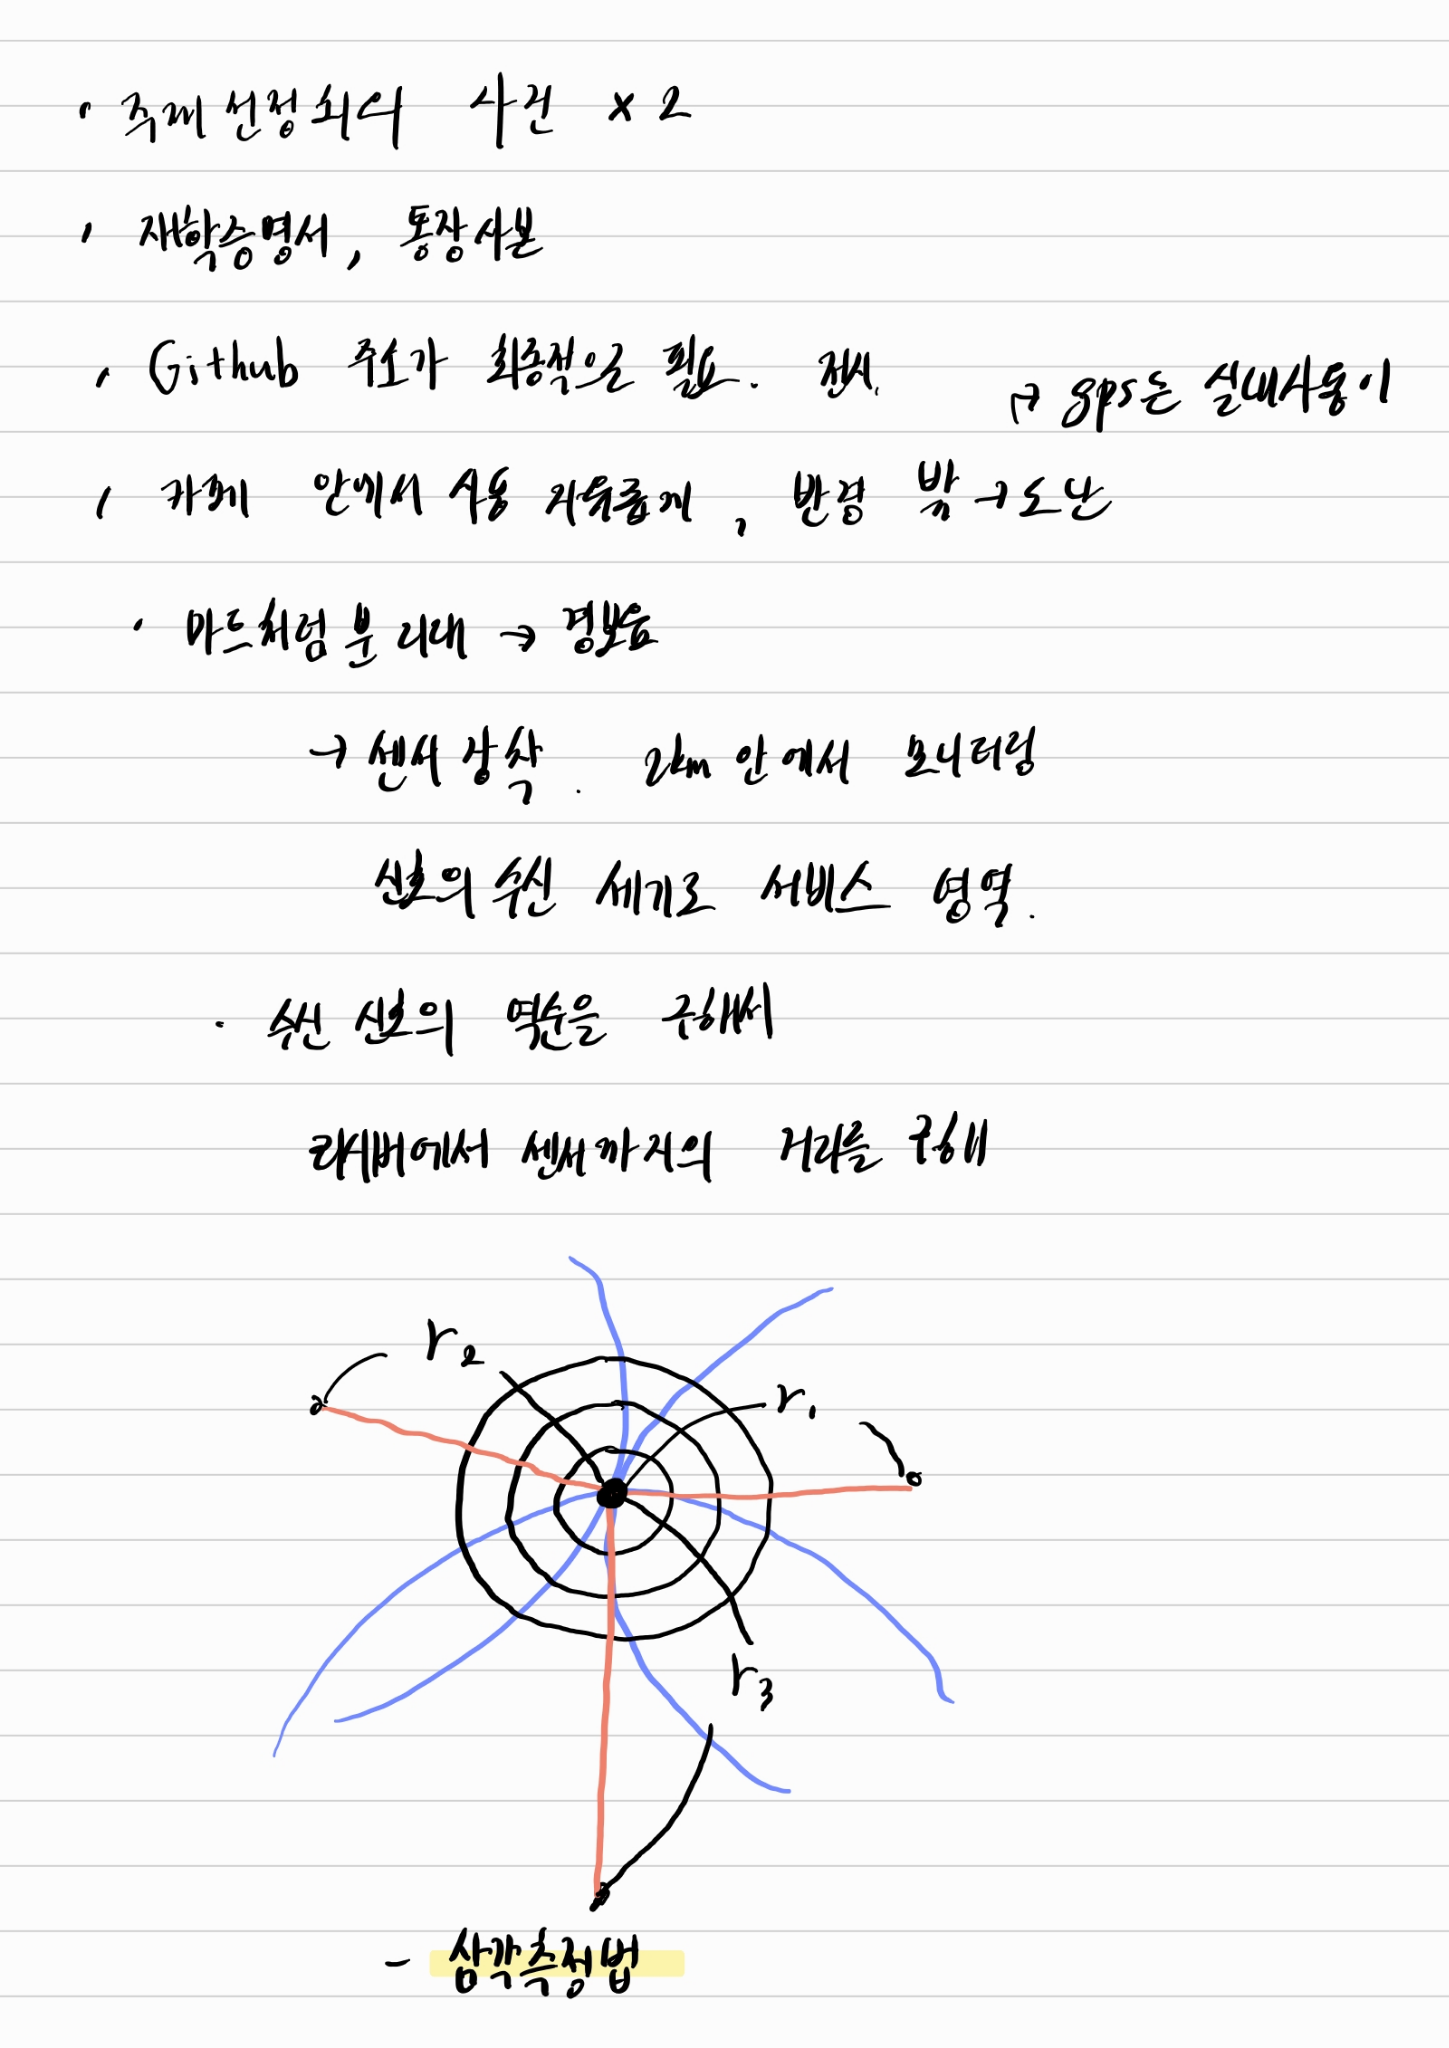 · 주제선정회의 사진 x 2
· 재학증명서, 통장사본
· Github 주소가 최종적으로 필요. 전시.
→ gps는 실내사용이
· 카페 안에서 사용 자유롭게, 반경 밖 → 도난
· 마트처럼 분리대 → 경보음
→ 센서 장착. 2km 안에서 모니터링
신호의 수신 세기로 서비스 영역.
· 수신 신호의 역순을 구해서
리시버에서 센서까지의 거리를 구해
r2
r1
r3
- 삼각측정법